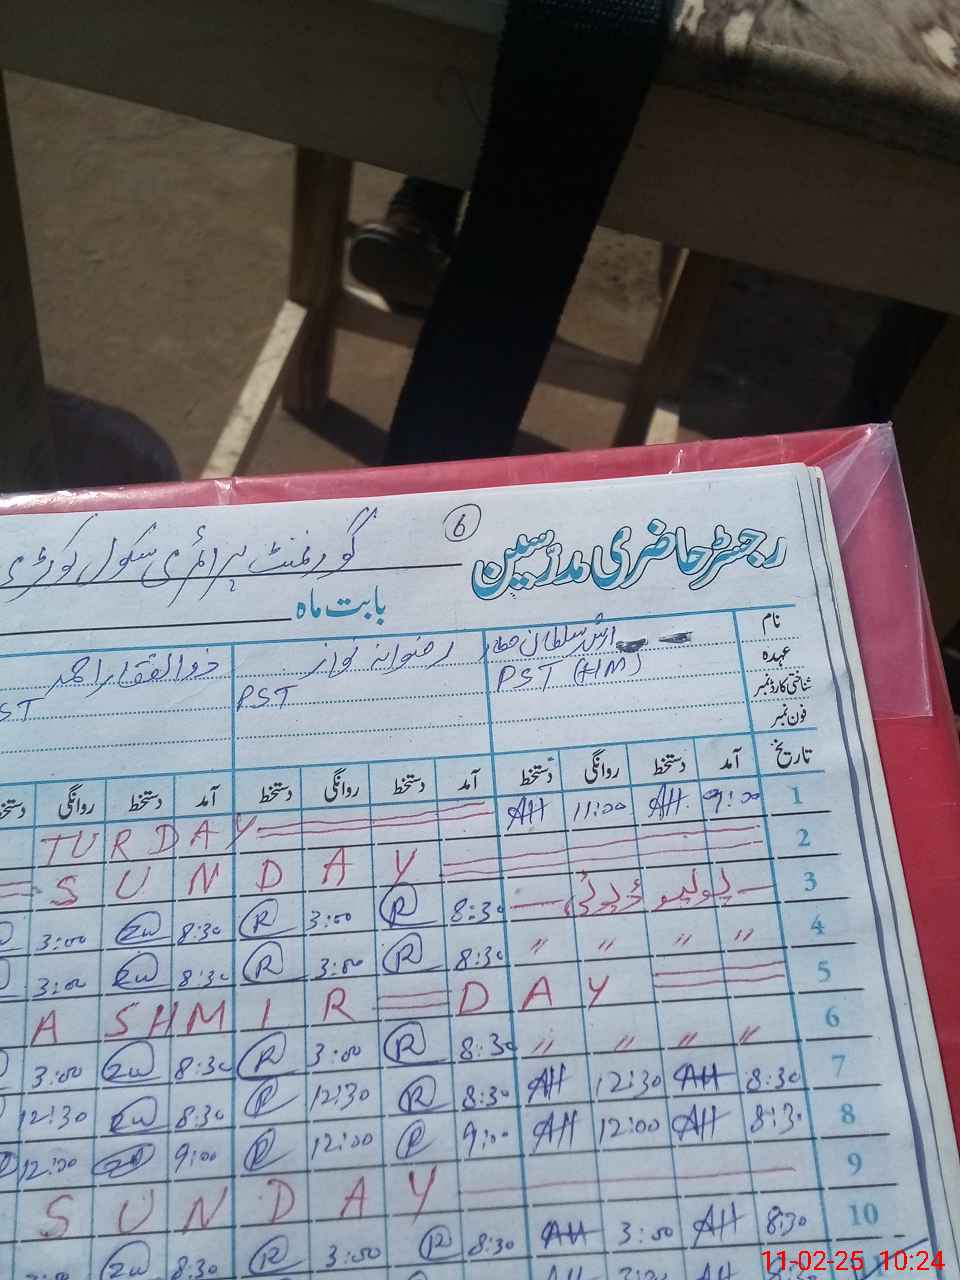 رجسٹر حاضری مدرسین 6 گورنمنٹ پرائمری سکول
بابت ماہ
نام ارشد سلطان رضوانہ نواز ذوالفقار احمد
عہدہ PST (HM) PST ST
شناختی کارڈ نمبر
فون نمبر
تاریخ آمد دستخط روانگی دستخط آمد دستخط روانگی دستخط آمد دستخط روانگی دستخط
1 9:00 AH 11:00 AH TURDAY
2 SUNDAY
3 پولیو ڈیوٹی 8:30 R 3:00 R 8:30 3:00
4 〃 〃 〃 〃 8:30 R 3:00 R 8:30 3:00
5 ASHMIR DAY
6 〃 〃 〃 〃 8:30 R 3:00 R 8:30 3:00
7 8:30 AH 12:30 AH 8:30 R 12:30 R 8:30 12:30
8 8:30 AH 12:00 AH 9:00 R 12:00 R 9:00 12:00
9 SUNDAY
10 8:30 AH 3:00 AH 8:30 R 3:00 R 8:30
11-02-25 10:24